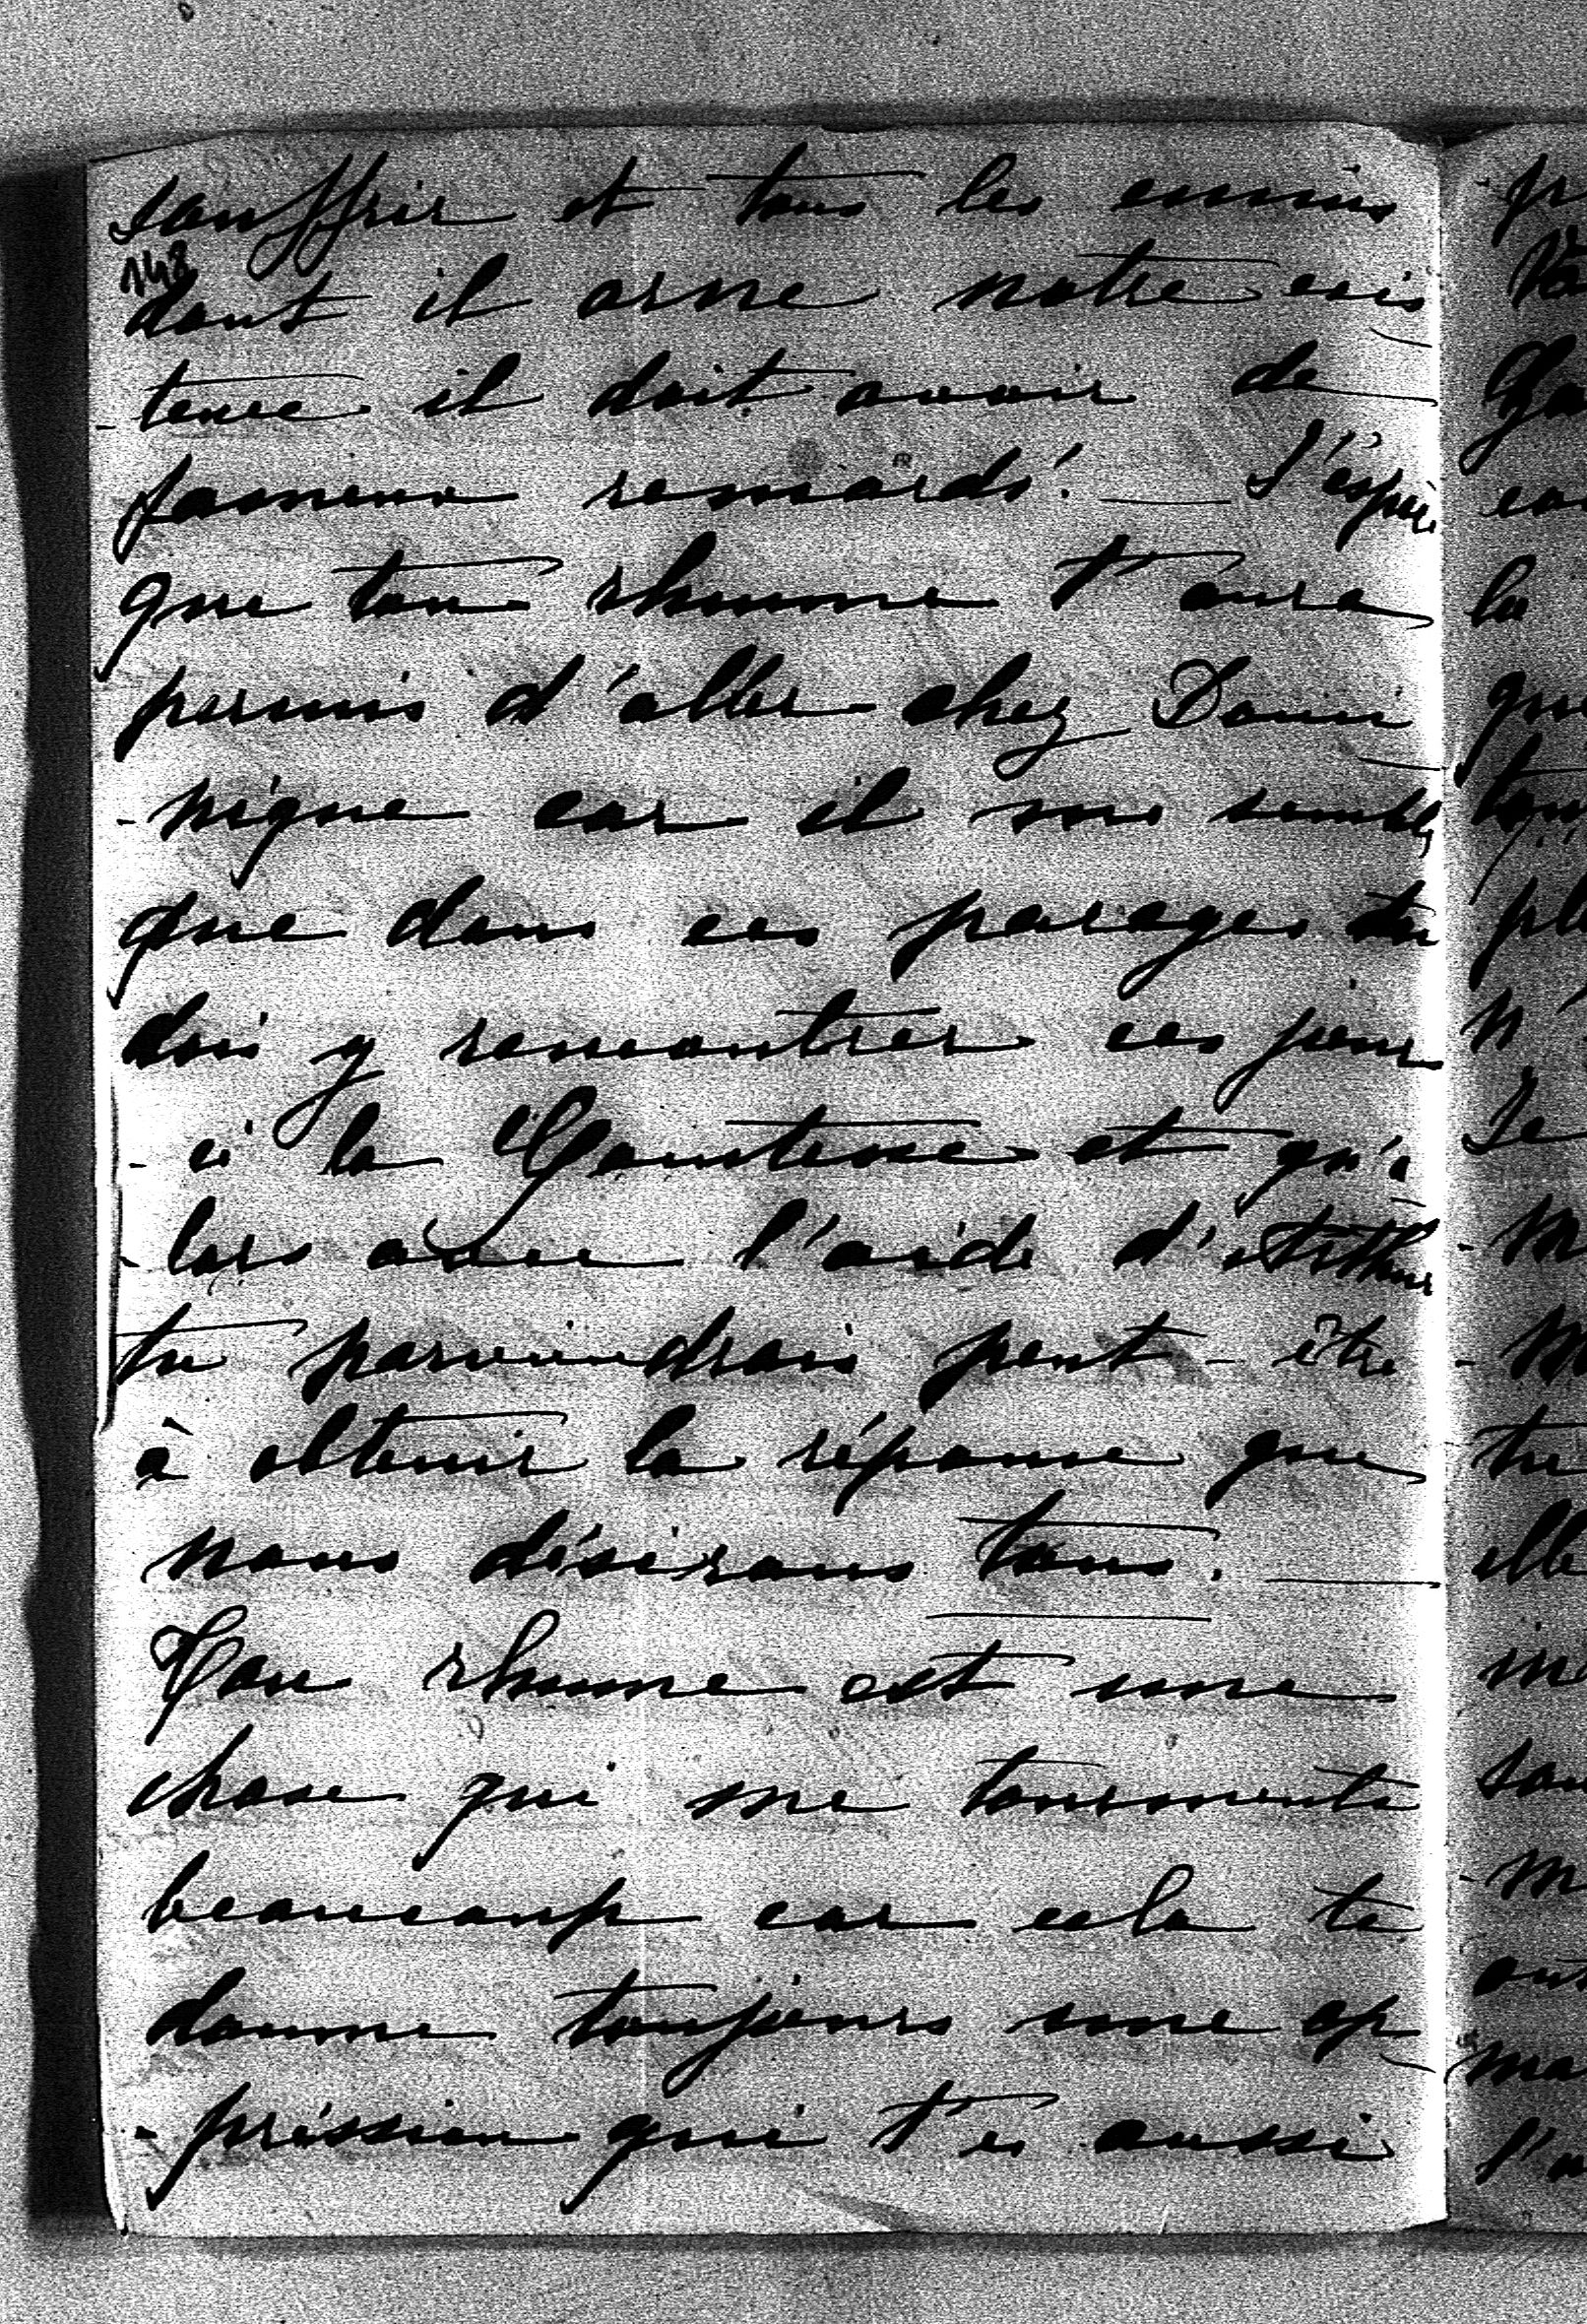 souffrir et tous les ennuis
148
dont il orne notre exis
-tence il doit avoir de
fameux remords! — J'espère
que ton rhume t'aura
permis d'aller chez Domi
-nique car il me semble
que dans ces parages tu
dois y rencontrer ces jours
-ci la Comtesse et qu'a
-lors avec l'aide d'Arthur
tu parviendrais peut-être
à obtenir la réponse que
nous désirons tous. —
Ton rhume est une
chose qui me tourmente
beaucoup car cela te
donne toujours une op
-préssion qui t'es aussi